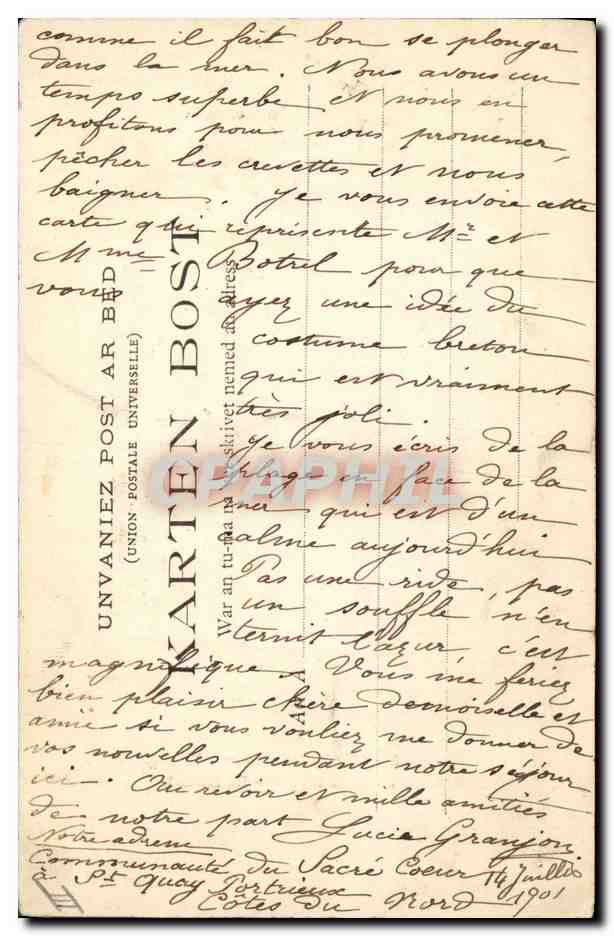 comme il fait bon se plonger
dans la mer. Nous avons un
temps superbe et nous en
profitons pour nous promener,
pêcher les crevettes et nous
baigner. Je vous envoie cette
carte qui représente Mr et
Mme Botrel pour que
vous ayez une idée du
costume breton
qui est vraiment
très joli.
Je vous écris de la
plage en face de la
mer qui est d'un
calme aujourd'hui
Pas une ride, pas
un souffle n'en
ternit l'azur, c'est
magnifique. Vous me feriez
bien plaisir chère demoiselle et
amie si vous vouliez me donner de
vos nouvelles pendant notre séjour
ici. Au revoir et mille amitiés
de notre part Lucie Granjon
Notre adresse
Communauté du Sacré Coeur 14 Juillet
à St Quay Portrieux 1901
Côtes du Nord
UNVANIEZ POST AR BED
(UNION POSTALE UNIVERSELLE)
KARTEN BOST
War an tu-ma na skrivet nemed ar adress
A
CPAPHIL